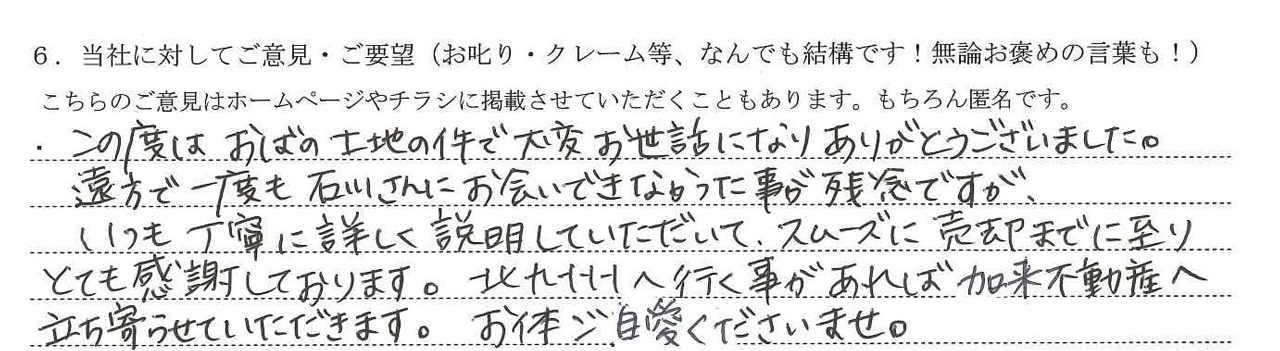 6．当社に対してご意見・ご要望（お叱り・クレーム等、なんでも結構です！無論お褒めの言葉も！）
こちらのご意見はホームページやチラシに掲載させていただくこともあります。もちろん匿名です。
・この度は おばの土地の件で大変お世話になりありがとうございました。
遠方で一度も石川さんにお会いできなかった事が残念ですが、
いつも丁寧に詳しく説明していただいて、スムーズに売却までに至り
とても感謝しております。北九州へ行く事があれば加来不動産へ
立ち寄らせていただきます。 お体ご自愛くださいませ。